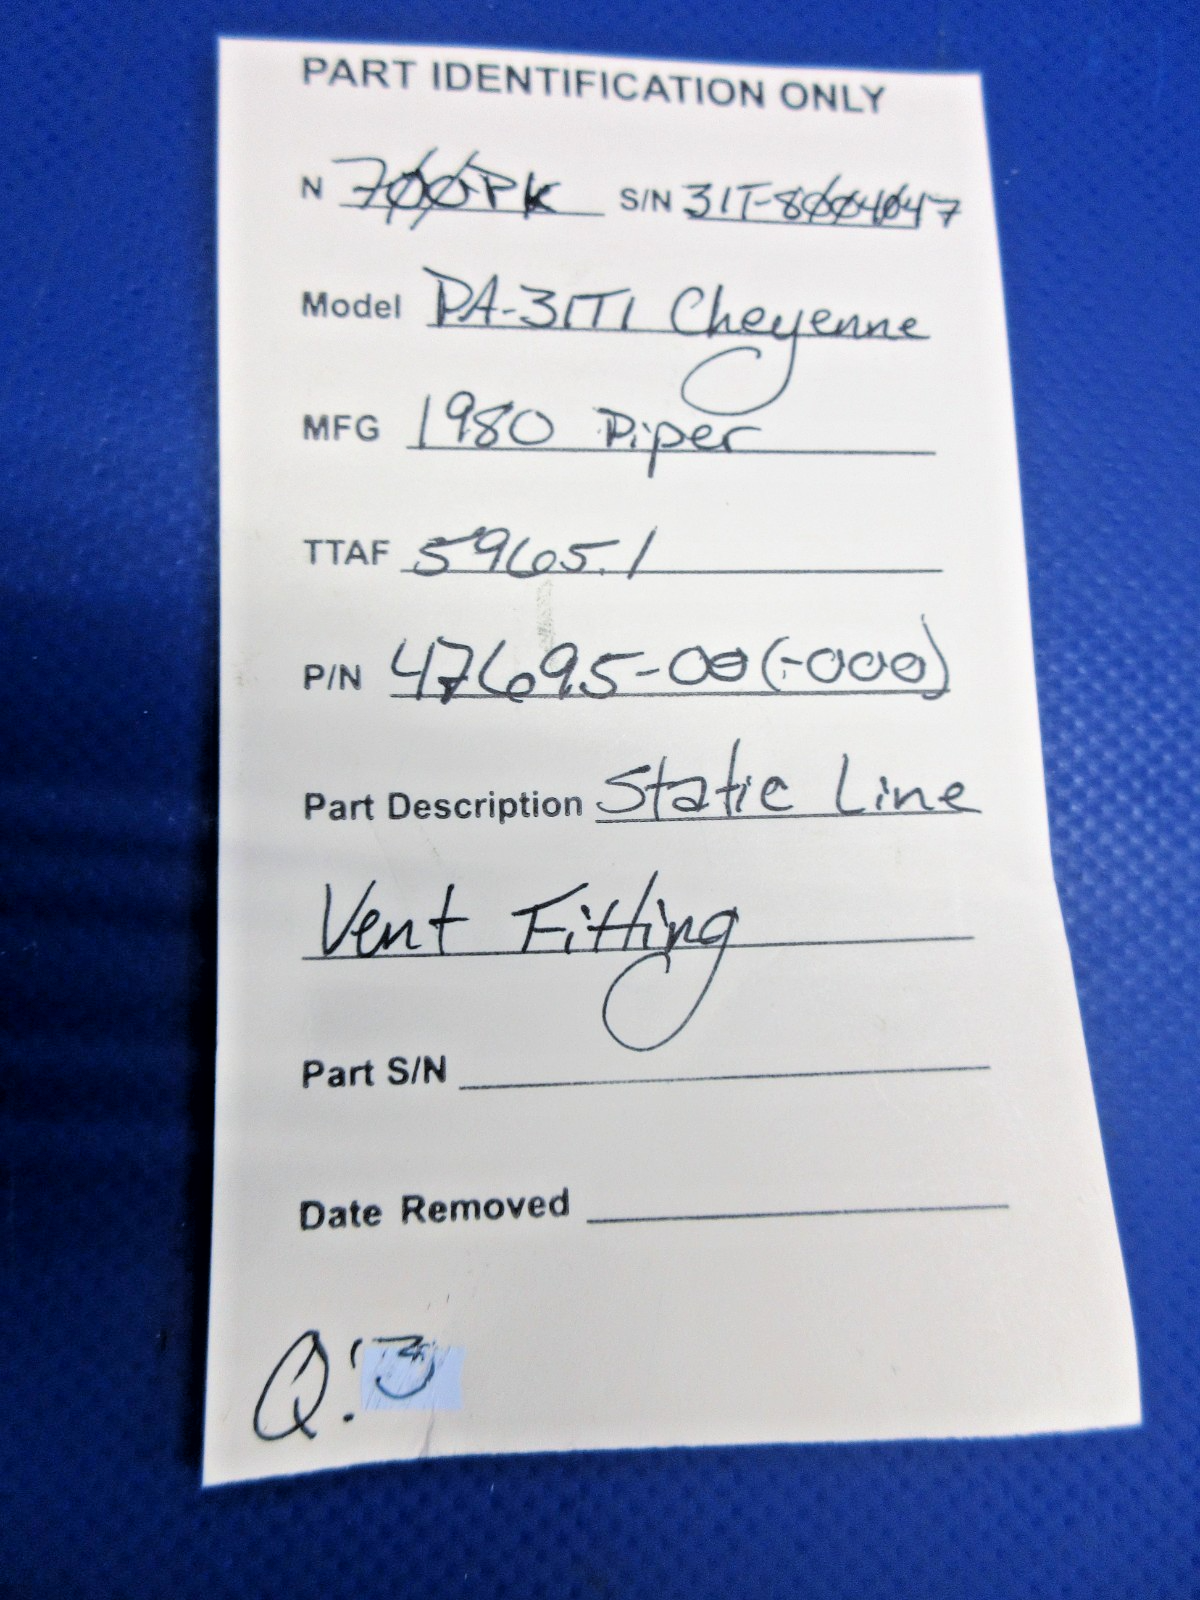 PART IDENTIFICATION ONLY
N 700PK S/N 31T-8004047
Model PA-31T1 Cheyenne
MFG 1980 Piper
TTAF 5965.1
P/N 47695-00 (-000)
Part Description Static Line
Vent Fitting
Part S/N
Date Removed
Q: 3